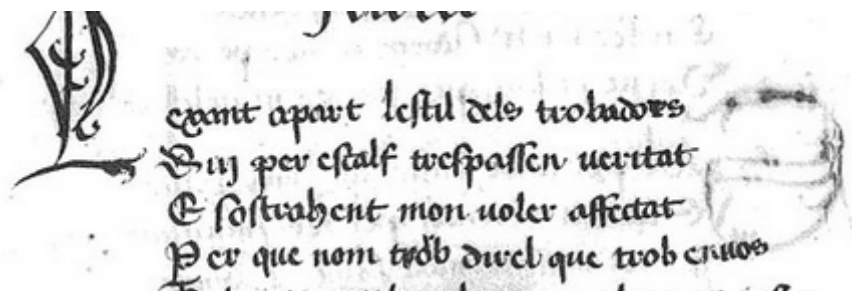 Lexant apart lestil dels trobadors
Qui per escalf trespassen ueritat
E sostrahent mon uoler affectat
Per que nom trob direl que trob enuos